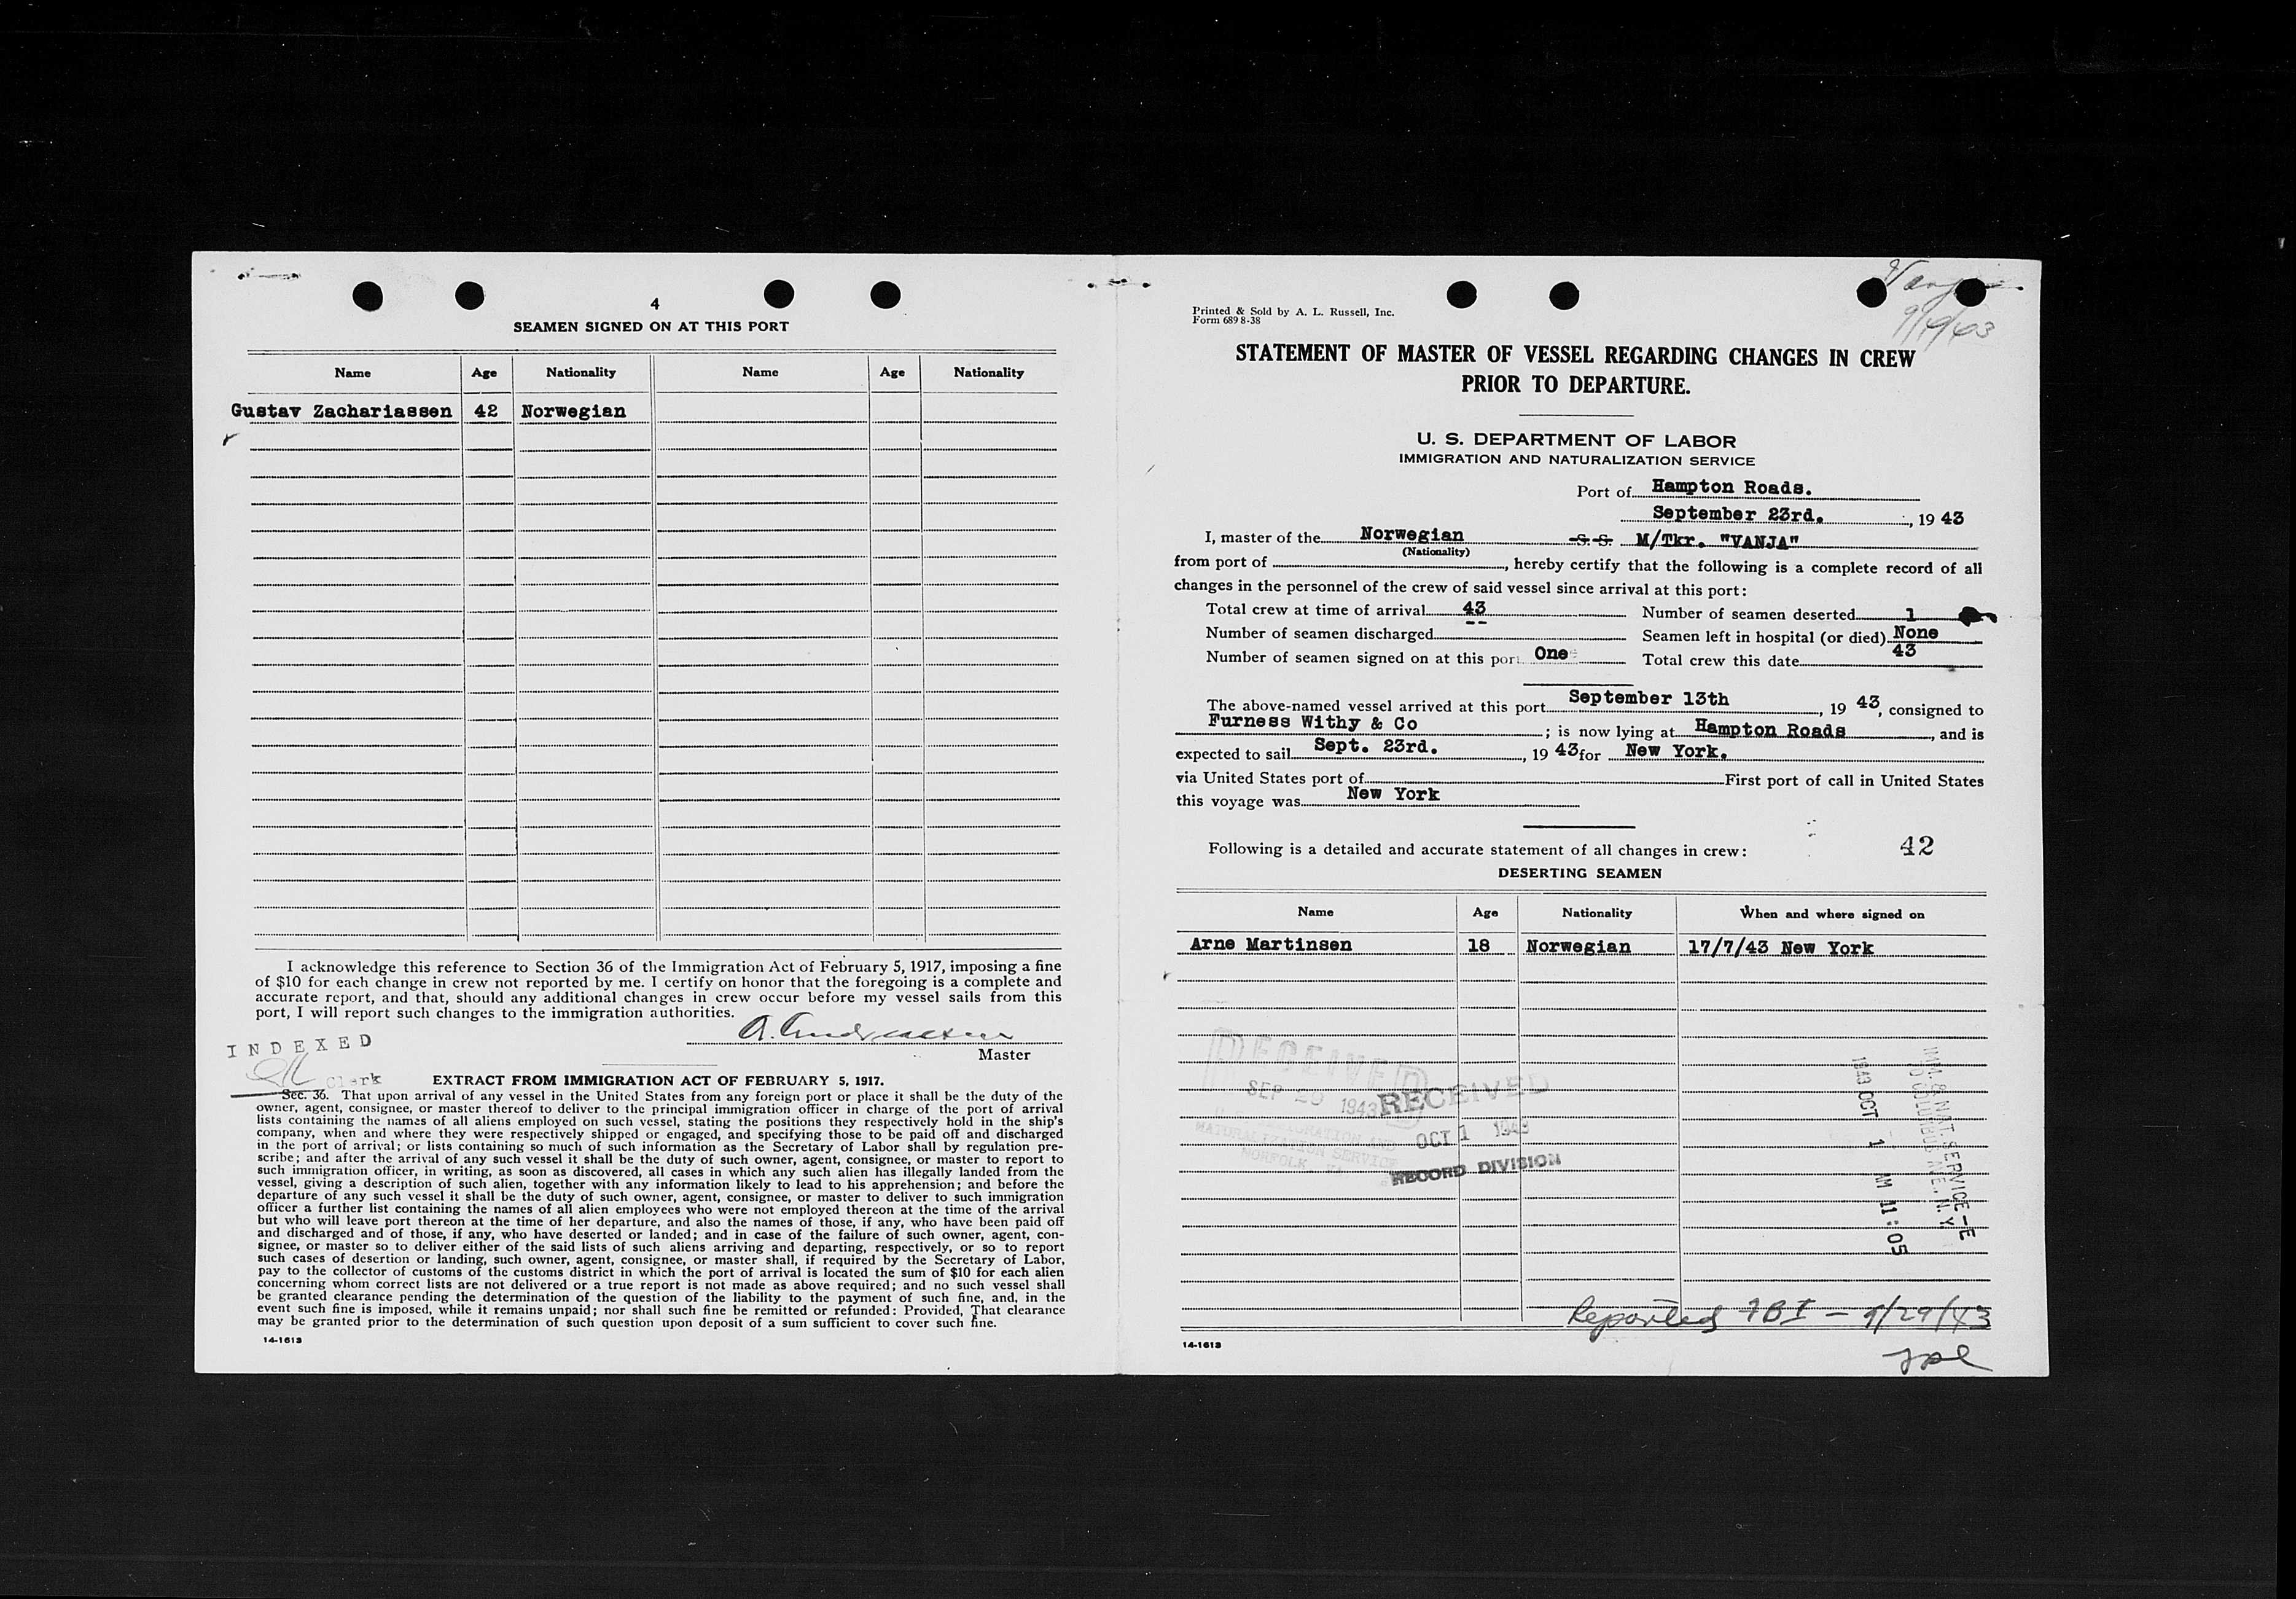 4
SEAMEN SIGNED ON AT THIS PORT
Name Age Nationality Name Age Nationality
Gustav Zachariassen 42 Norwegian
I acknowledge this reference to Section 36 of the Immigration Act of February 5, 1917, imposing a fine
of $10 for each change in crew not reported by me. I certify on honor that the foregoing is a complete and
accurate report, and that, should any additional changes in crew occur before my vessel sails from this
port, I will report such changes to the immigration authorities.
Master
INDEXED
Clerk
EXTRACT FROM IMMIGRATION ACT OF FEBRUARY 5, 1917.
Sec. 36. That upon arrival of any vessel in the United States from any foreign port or place it shall be the duty of the
owner, agent, consignee, or master thereof to deliver to the principal immigration officer in charge of the port of arrival
lists containing the names of all aliens employed on such vessel, stating the positions they respectively hold in the ship's
company, when and where they were respectively shipped or engaged, and specifying those to be paid off and discharged
in the port of arrival; or lists containing so much of such information as the Secretary of Labor shall by regulation pre-
scribe; and after the arrival of any such vessel it shall be the duty of such owner, agent, consignee, or master to report to
such immigration officer, in writing, as soon as discovered, all cases in which any such alien has illegally landed from the
vessel, giving a description of such alien, together with any information likely to lead to his apprehension; and before the
departure of any such vessel it shall be the duty of such owner, agent, consignee, or master to deliver to such immigration
officer a further list containing the names of all alien employees who were not employed thereon at the time of the arrival
but who will leave port thereon at the time of her departure, and also the names of those, if any, who have been paid off
and discharged and of those, if any, who have deserted or landed; and in case of the failure of such owner, agent, con-
signee, or master so to deliver either of the said lists of such aliens arriving and departing, respectively, or so to report
such cases of desertion or landing, such owner, agent, consignee, or master shall, if required by the Secretary of Labor,
pay to the collector of customs of the customs district in which the port of arrival is located the sum of $10 for each alien
concerning whom correct lists are not delivered or a true report is not made as above required; and no such vessel shall
be granted clearance pending the determination of the question of the liability to the payment of such fine, and, in the
event such fine is imposed, while it remains unpaid; nor shall such fine be remitted or refunded: Provided, That clearance
may be granted prior to the determination of such question upon deposit of a sum sufficient to cover such fine.
14-1613
Printed & Sold by A. L. Russell, Inc.
Form 689 8-38
STATEMENT OF MASTER OF VESSEL REGARDING CHANGES IN CREW
PRIOR TO DEPARTURE.
U. S. DEPARTMENT OF LABOR
IMMIGRATION AND NATURALIZATION SERVICE
Port of Hampton Roads.
September 23rd., 1943
I, master of the Norwegian S. S. M/Tkr. "VANJA"
(Nationality)
from port of , hereby certify that the following is a complete record of all
changes in the personnel of the crew of said vessel since arrival at this port:
Total crew at time of arrival 43 Number of seamen deserted 1
Number of seamen discharged -- Seamen left in hospital (or died) None
Number of seamen signed on at this port One Total crew this date 43
The above-named vessel arrived at this port September 13th, 1943, consigned to
Furness Withy & Co ; is now lying at Hampton Roads, and is
expected to sail Sept. 23rd., 1943 for New York.
via United States port of First port of call in United States
this voyage was New York
Following is a detailed and accurate statement of all changes in crew: 42
DESERTING SEAMEN
Name Age Nationality When and where signed on
Arne Martinsen 18 Norwegian 17/7/43 New York
RECEIVED
SEP 1943
IMMIGRATION AND
NATURALIZATION SERVICE
NORFOLK, VA.
RECEIVED
OCT 1 1943
RECORD DIVISION
1943 OCT 1 AM 11:05
IMM. & NAT. SERVICE-E
Reported FBI - 9/29/43
14-1613